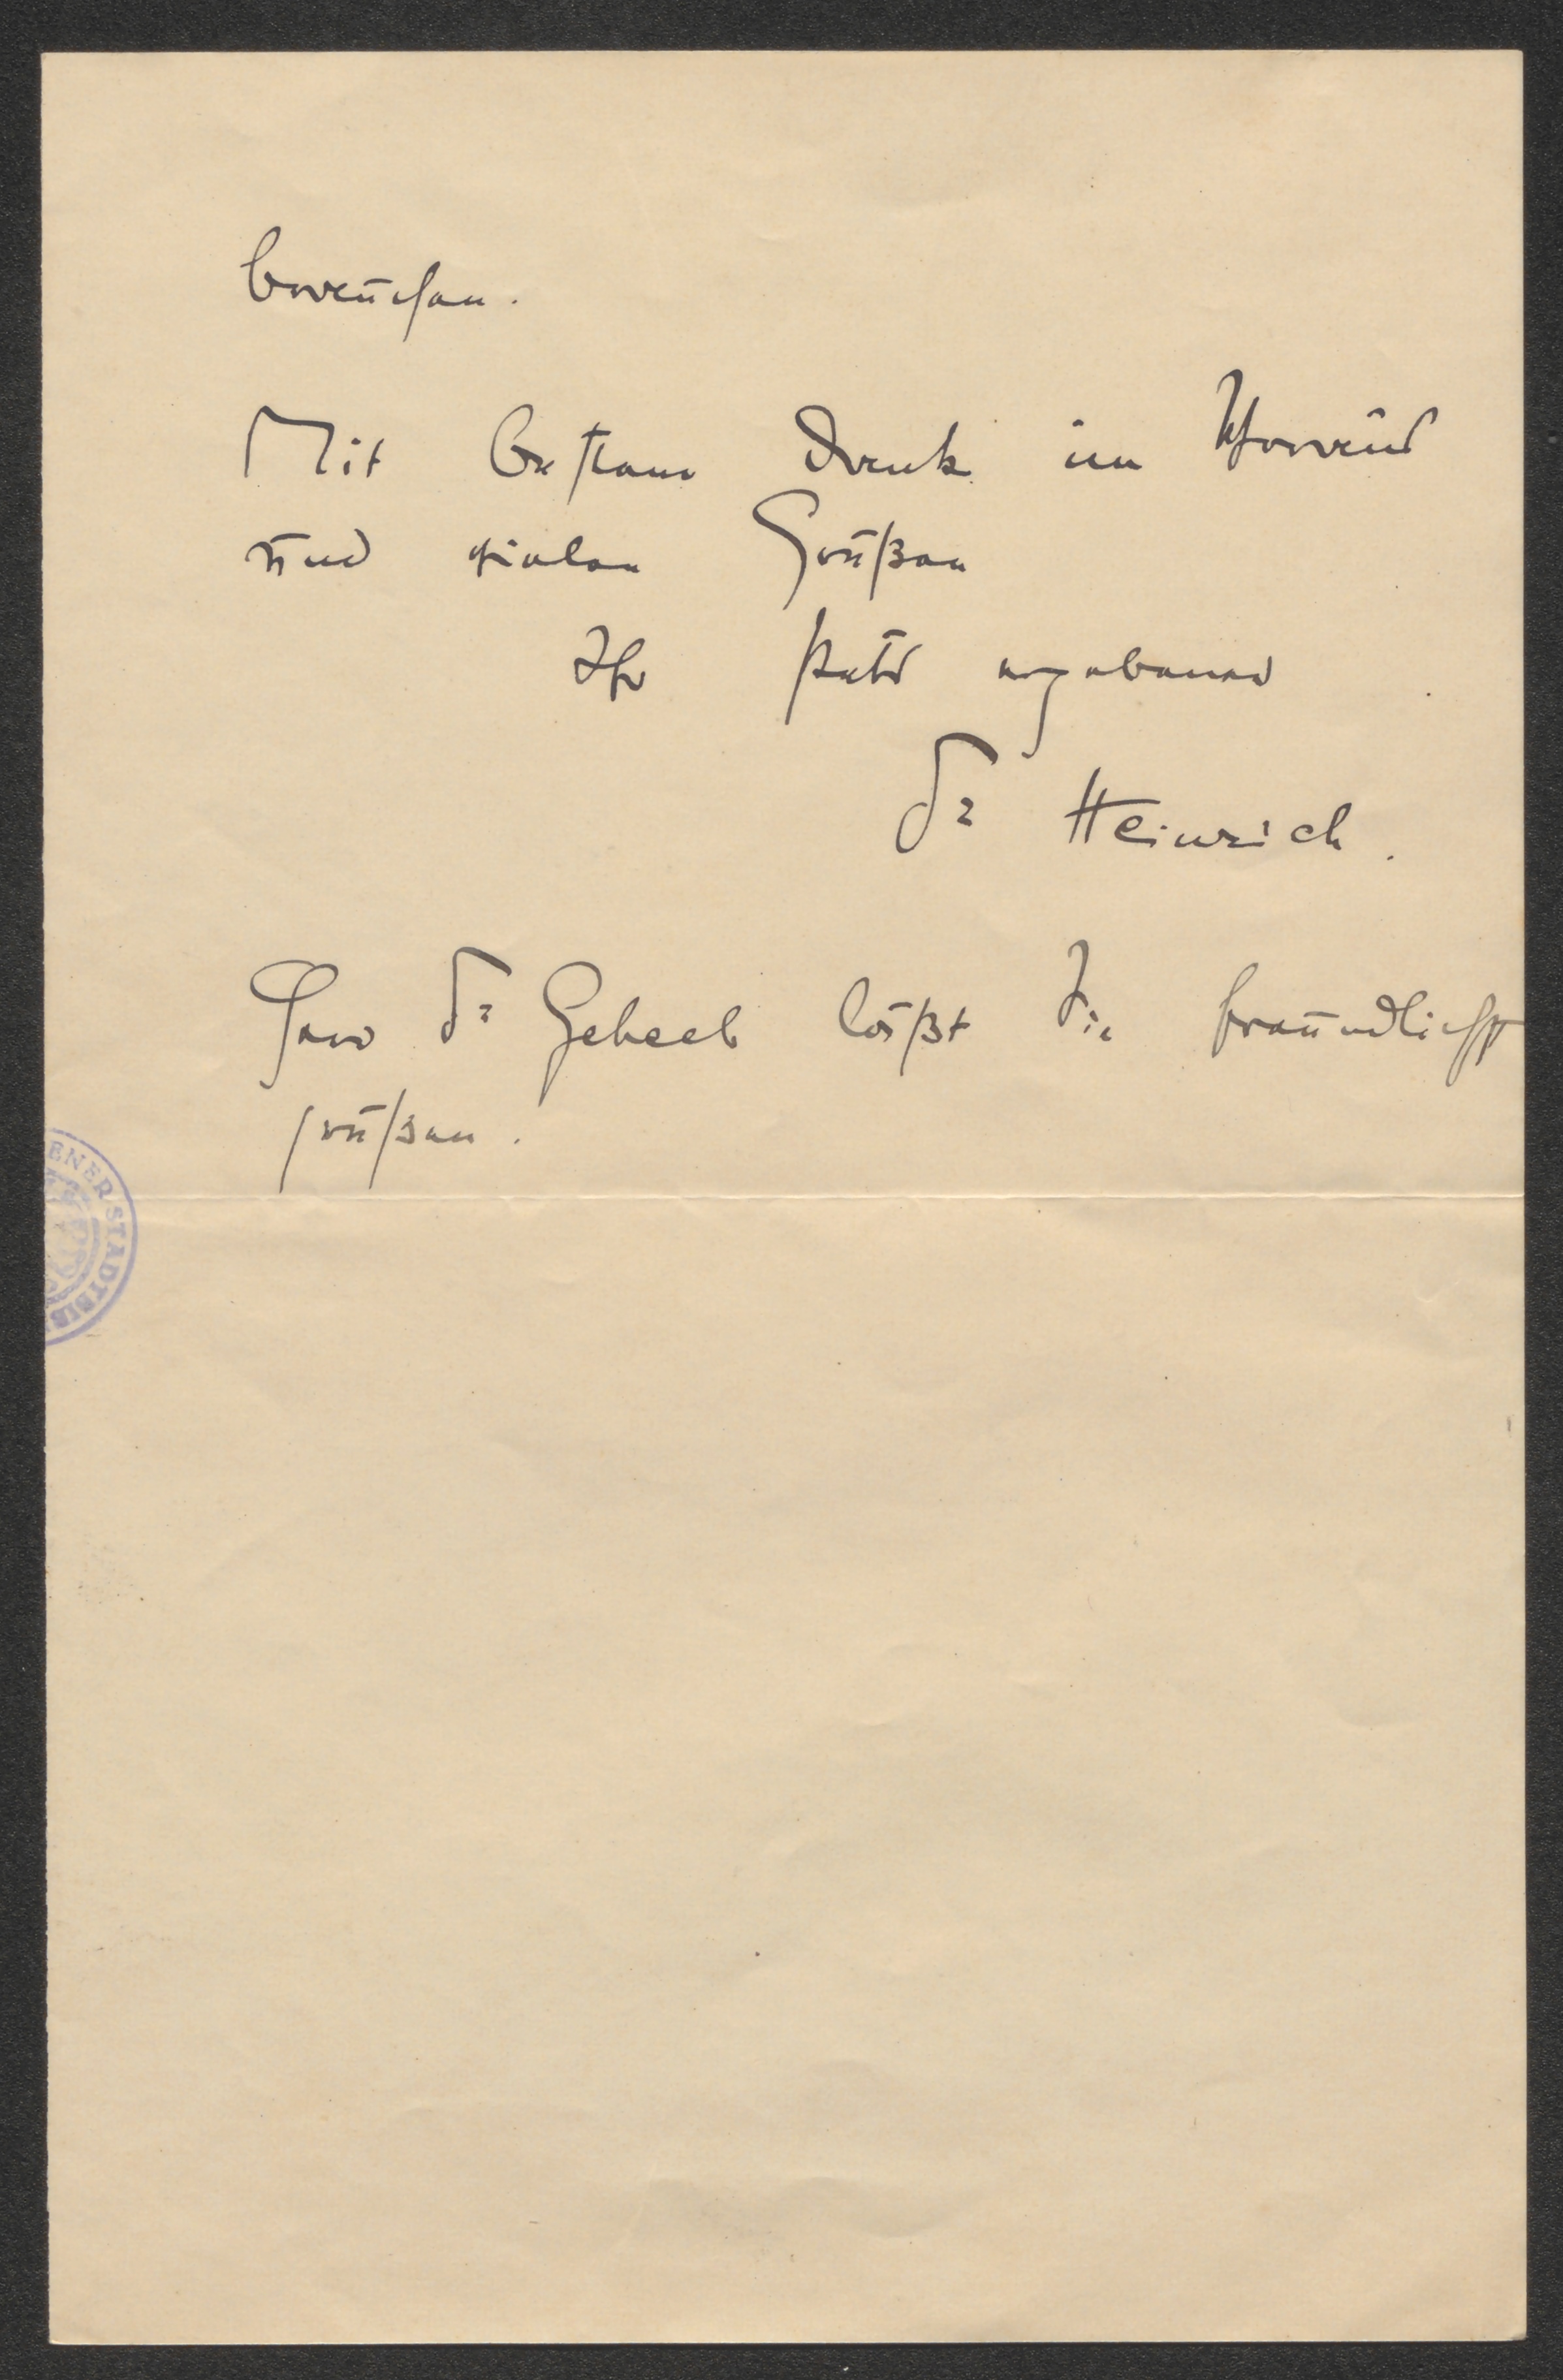 brauchen.
Mit bestem Dank im Voraus
und vielen Grüßen
Ihr stets ergebener
Dr Heinrich.
Herr Dr Geheeb läßt Sie freundlichst
grüßen.
ENER STADTBIB